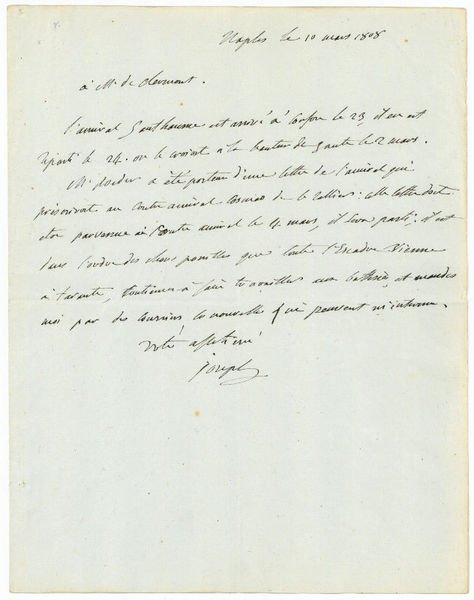 Naples le 10 mars 1808
à Mr. de Clermont.
l'amiral Ganthaume est arrivé à Corfou le 23, il en est
reparti le 24. on le croioit à la hauteur de le 2 mars.
Mr. a été porteur d'une lettre de l'amiral qui
prescrivoit au Contre amiral Cosmao de le rallier: cette lettre doit
être parvenue au Contre amiral le 4 mars, il sera parti. il est
dans l'ordre des choses possibles que toute l'Escadre vienne
à Tarente, Continuez à faire travailler aux batteries, et mandez
moi par des couriers les nouvelles qui peuvent m'interesser.
votre affectionné
Joseph